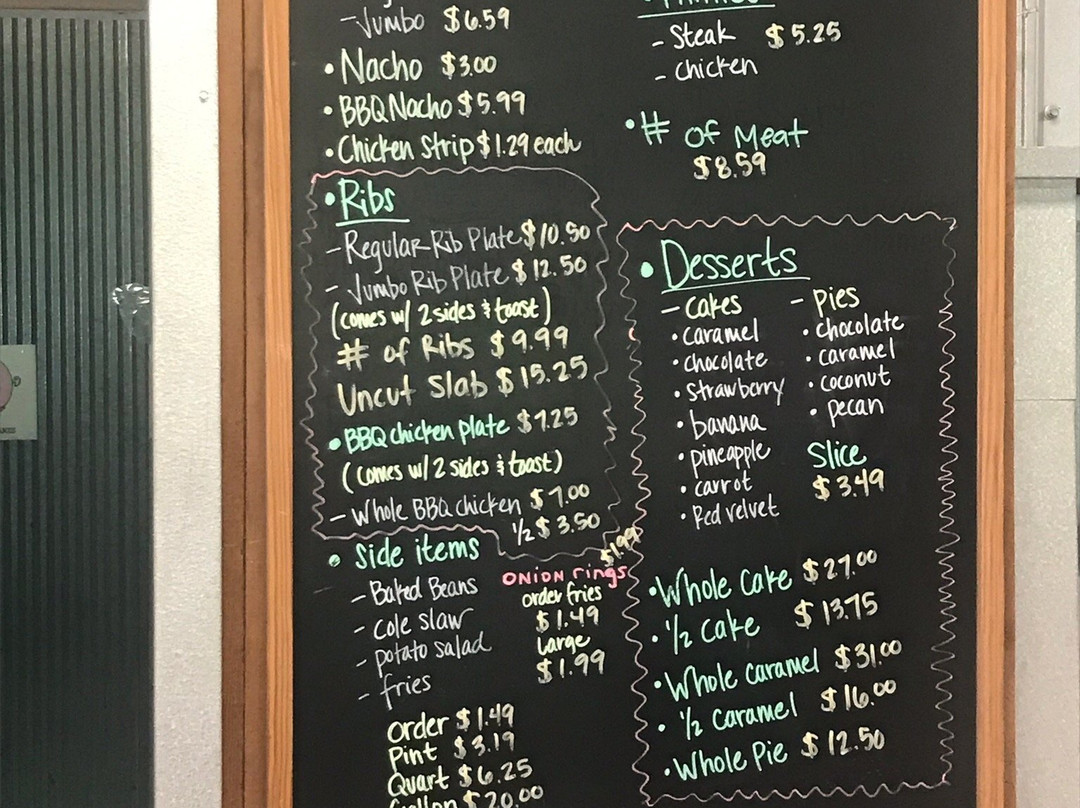 -Jumbo $6.59
• Nacho $3.00
• BBQ Nacho $5.99
• Chicken Strip $1.29 each
• Ribs
- Regular Rib Plate $10.50
- Jumbo Rib Plate $12.50
(comes w/ 2 sides & toast)
# of Ribs $9.99
Uncut Slab $15.25
• BBQ chicken plate $7.25
(comes w/ 2 sides & toast)
- Whole BBQ chicken $7.00
½ $3.50
• Side items
- Baked Beans
- Cole slaw
- potato salad
- fries
$1.99
ONION rings
order fries
$1.49
Large
$1.99
Order $1.49
Pint $3.19
Quart $6.25
Gallon $20.00
- Steak $5.25
- chicken
• # of Meat
$8.59
• Desserts
- Cakes
• caramel
• chocolate
• strawberry
• banana
• pineapple
• carrot
• Red velvet
- pies
• chocolate
• caramel
• coconut
• pecan
Slice
$3.49
• Whole Cake $27.00
• ½ Cake $13.75
• Whole Caramel $31.00
• ½ Caramel $16.00
• Whole Pie $12.50